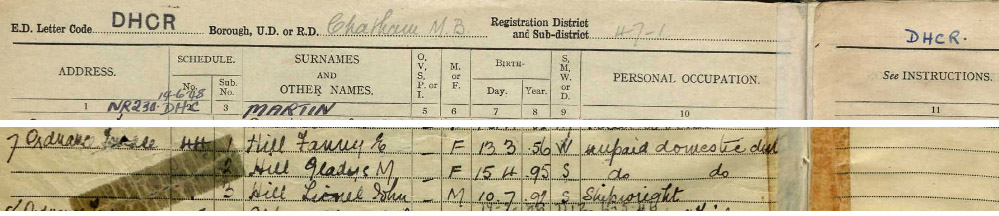 E.D. Letter Code DHCR Borough, U.D. or R.D. Chatham M.B. Registration District and Sub-district 47-1
DHCR.
ADDRESS. SCHEDULE. SURNAMES AND OTHER NAMES. O, V, S, P. or I. M. or F. BIRTH- S, M, W, or D. PERSONAL OCCUPATION. See INSTRUCTIONS.
No. Sub. No. Day. Year.
1 NR230. DHC 19-6-48 3 MARTIN 5 6 7 8 9 10 11
7 Ordnance 1 Hill Fanny E – F 13 3 .56 W unpaid domestic dut
2 Hill Gladys M – F 15 4 .95 S do do
3 Hill Lionel John – M 10.7.91 S Shipwright